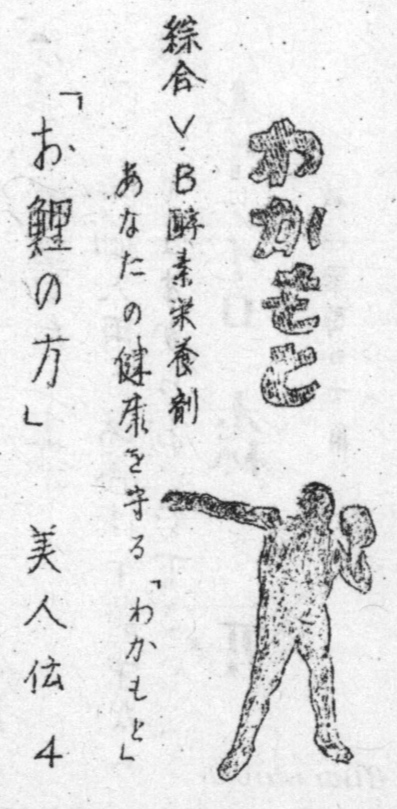 わかもと
綜合V·B酵素栄養剤
あなたの健康を守る「わかもと」
「お鯉の方」 美人伝 4